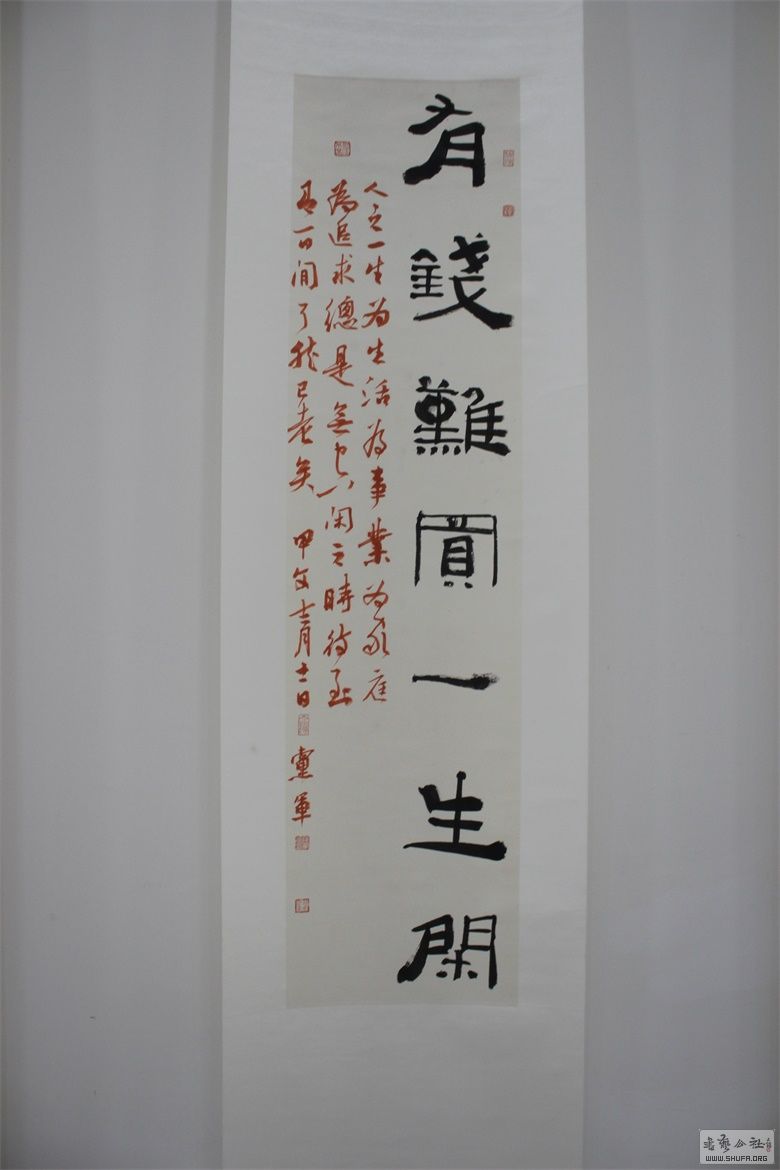 有錢難買一生閑
人之一生为生活为事業为家庭
為追求總是無心閑之時待至
有一日閒了離已老矣 甲午十二月十一日 憲軍
書藝公社
WWW.SHUFA.ORG